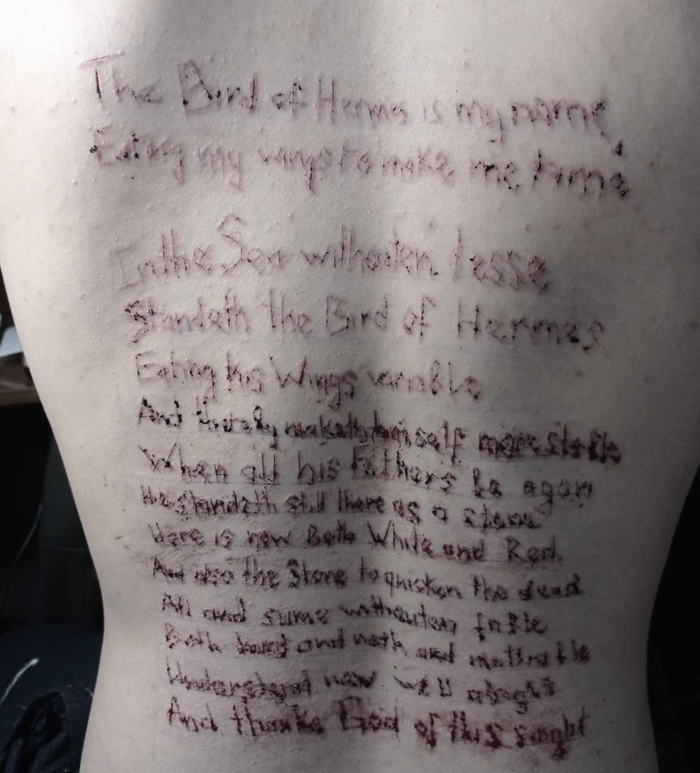 The Bird of Hermes is my name,
Eating my wings to make me tame
In the Sea withouten lesse
Standeth the Bird of Hermes
Eating his Wings variable
And thereby maketh himself more stable
When all his Fathers be agon
He standeth still there as a stone
Here is now Both White and Red
And also the Stone to quicken the dead
All and sume withouten fable
Both hard and nesh and malleable
Understand now well aright
And thanke God of this sight